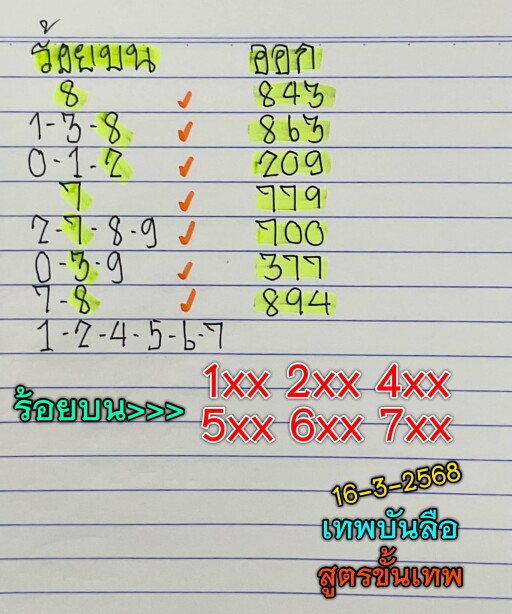 ร้อยบน ออก
8 ✓ 843
1-3-8 ✓ 863
0-1-2 ✓ 209
7 ✓ 779
2-7-8-9 ✓ 700
0-3-9 ✓ 377
7-8 ✓ 894
1-2-4-5-6-7
ร้อยบน>>> 1xx 2xx 4xx
5xx 6xx 7xx
16-3-2568
เทพบันลือ
สูตรขั้นเทพ